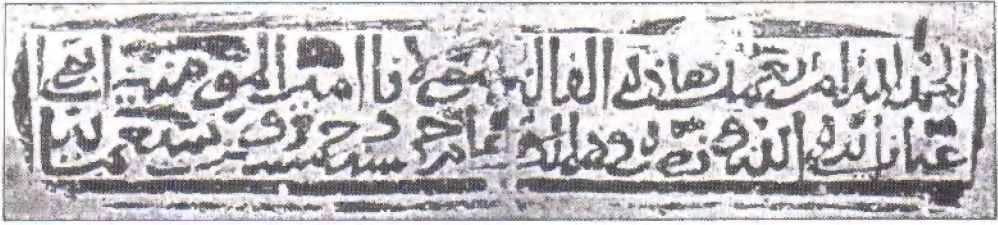 الحمد لله امر بعمل هاذه القالة مولانا امير المومنين ابى
عنان ايده الله ونصره عام خمسة وخمسين وسبع مائة